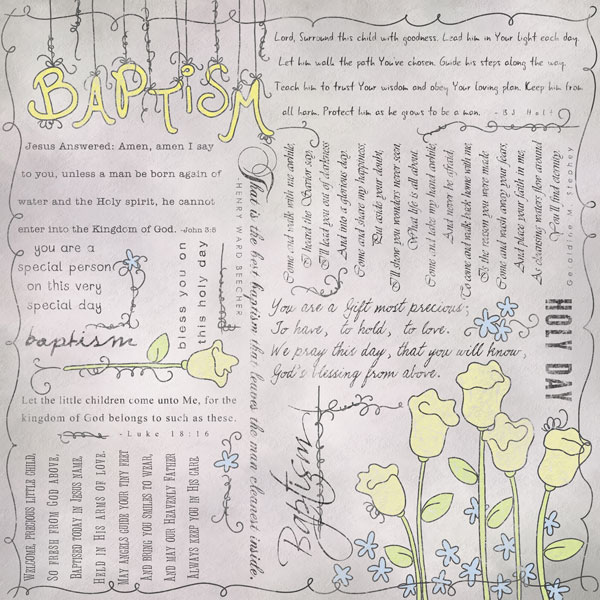 BAPTISM
Lord, Surround this child with goodness. Lead him in Your light each day.
Let him walk the path You've chosen. Guide his steps along the way.
Teach him to trust Your wisdom and obey Your loving plan. Keep him from
all harm. Protect him as he grows to be a man. - B.J. Hoff
Jesus Answered: Amen, amen I say
to you, unless a man be born again of
water and the Holy spirit, he cannot
enter into the Kingdom of God. -John 3:5
you are a
special person
on this very
special day
bless you on
this holy day
That is the best baptism that leaves the man cleanest inside.
HENRY WARD BEECHER
Come and walk with me awhile,
I heard the Savior say,
I'll lead you out of darkness
And into a glorious day.
Come and share my happiness,
Put aside your doubt,
I'll show you wonders never seen,
What life is all about.
Come and take my hand awhile,
And never be afraid,
Come and walk back home with me,
It's the reason you were made
Come and wash away your fears,
And place your faith in me,
As cleansing waters flow around
You'll find eternity.
Geraldine M. Stephey
baptism
You are a Gift most precious;
To have, to hold, to love.
We pray this day, that you will know,
God's blessing from above.
HOLY DAY
Let the little children come unto Me, for the
kingdom of God belongs to such as these.
-Luke 18:16
Welcome, precious little child,
So fresh from God above,
Baptised today in Jesus name,
Held in His arms of love.
May angels guide your tiny feet
And bring you smiles to wear,
And may our Heavenly Father
Always keep you in His care
Baptism